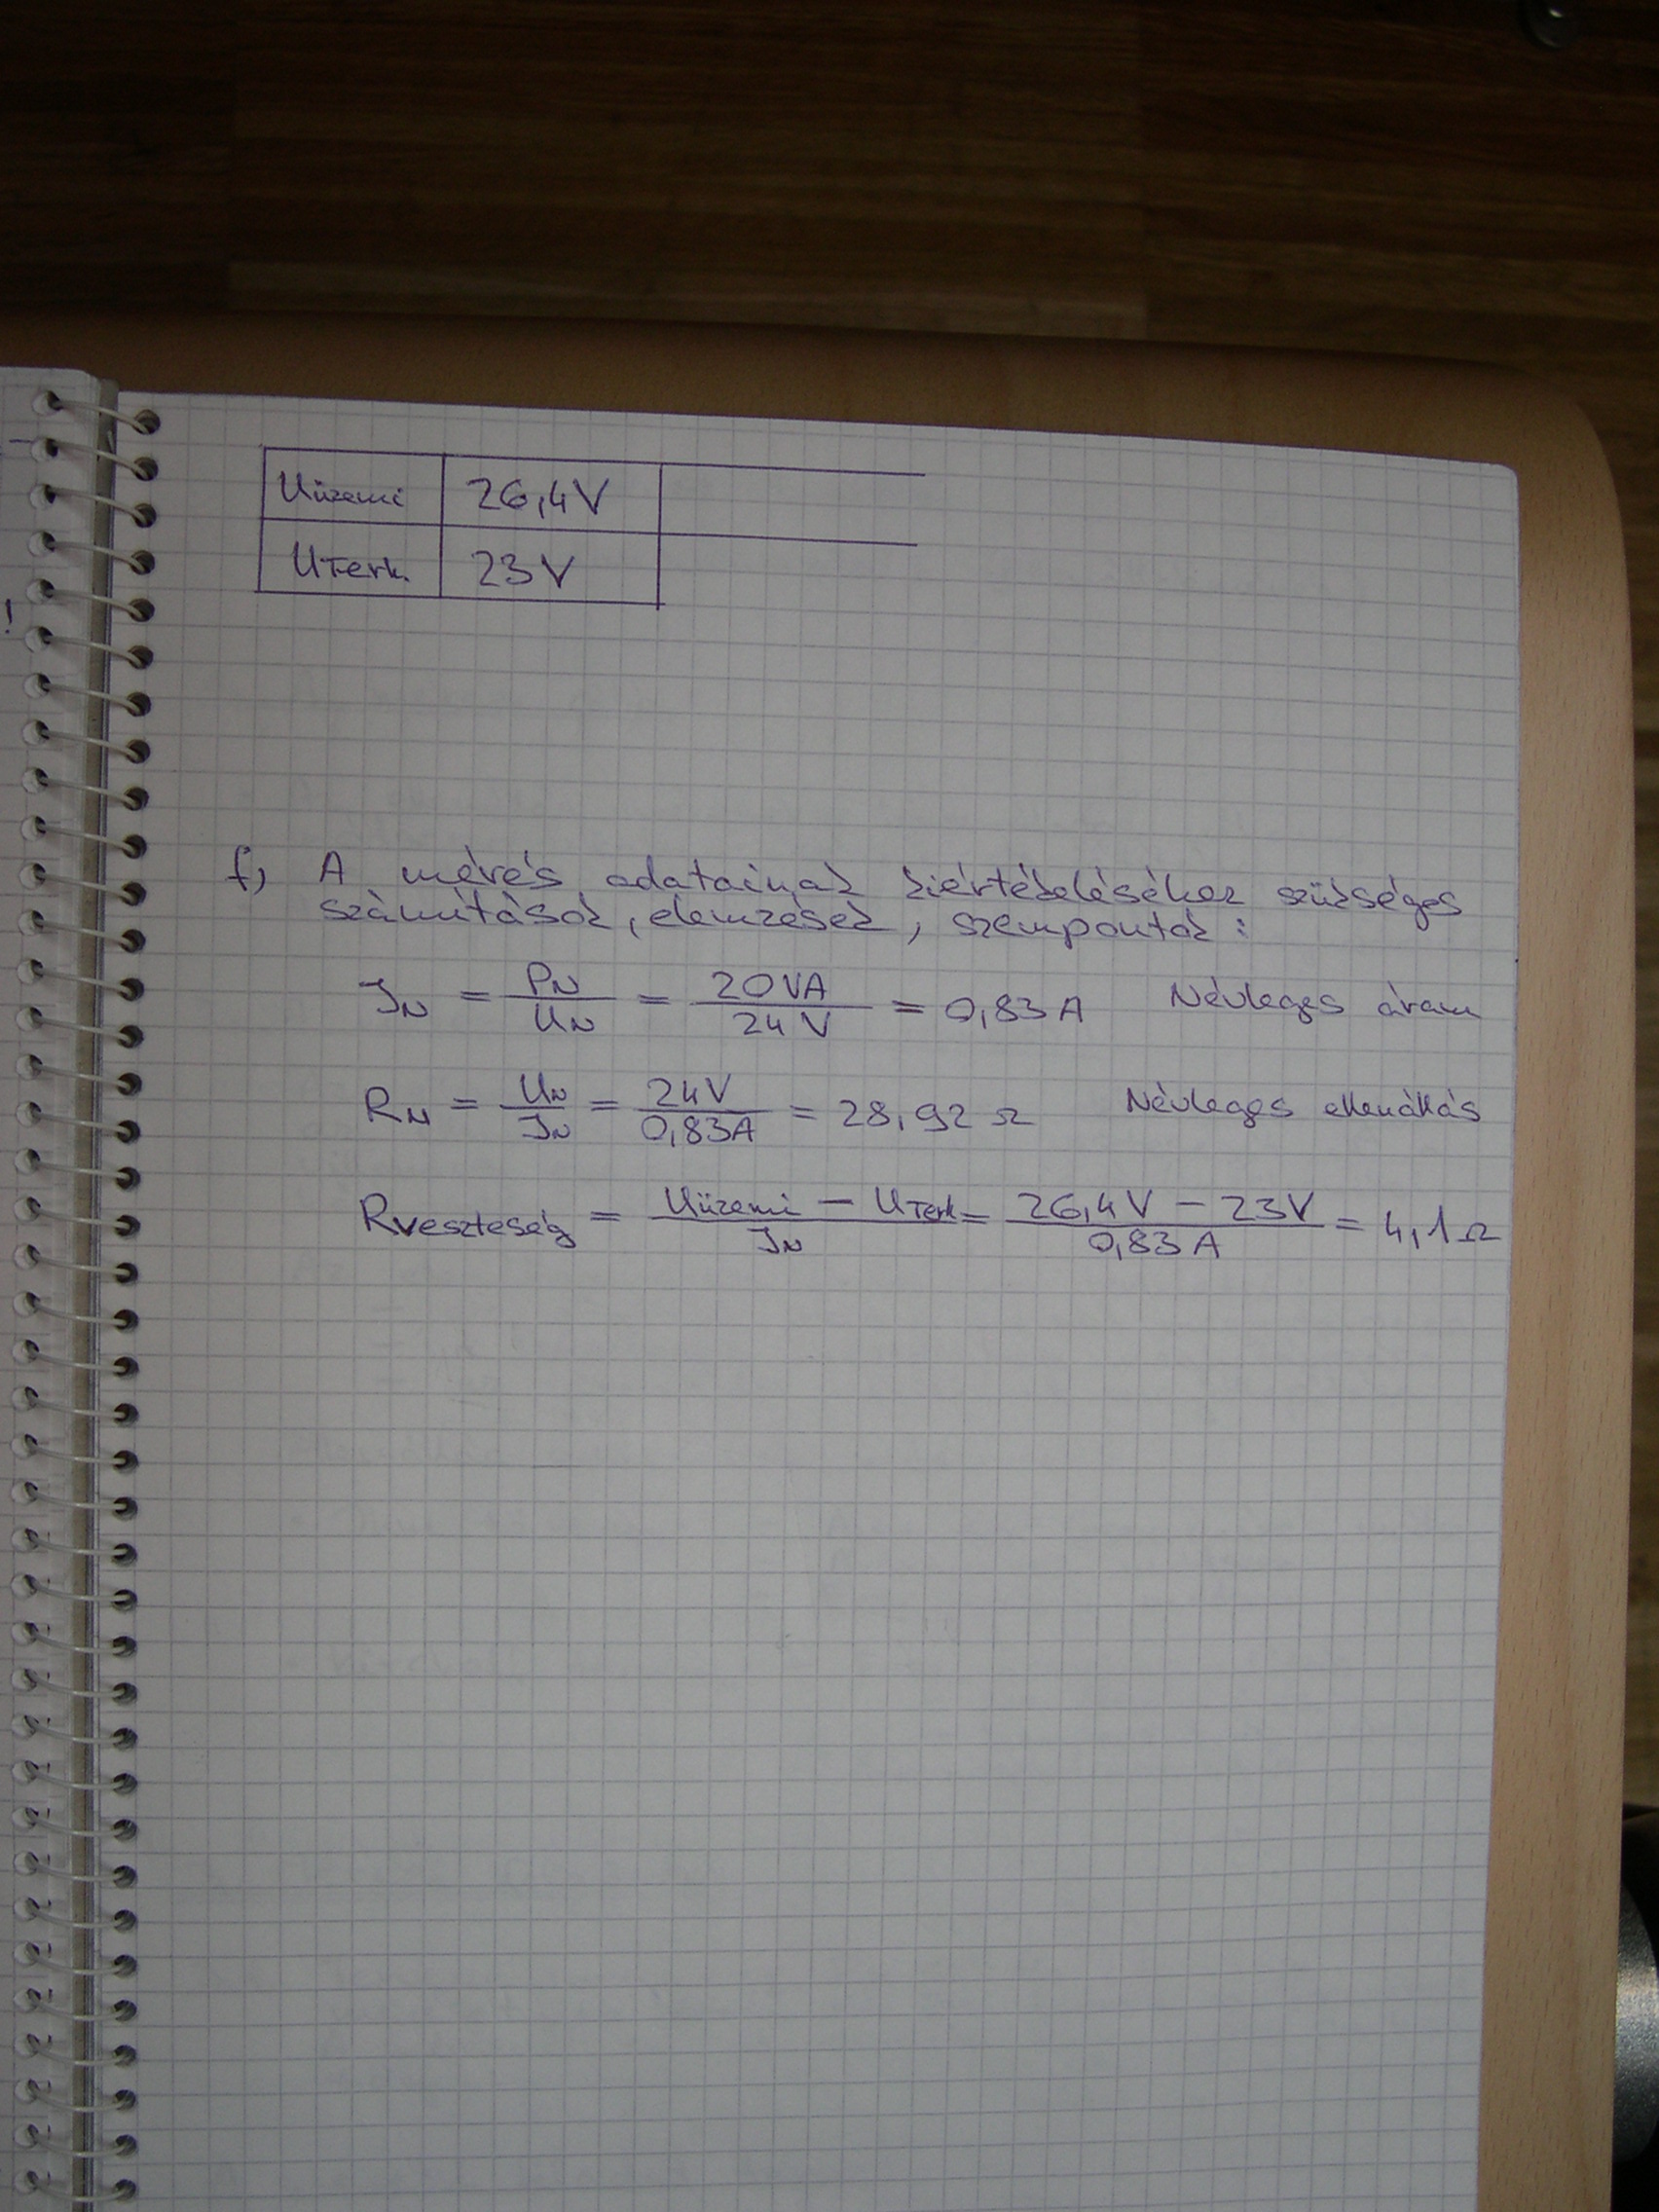 Uüzemi 26,4V
UTerh. 23V
!
f, A mérés adatainak kiértékeléséhez szükséges
számítások, elemzések, szempontok:
IN = PN/UN = 20VA/24V = 0,83A Névleges áram
RN = UN/IN = 24V/0,83A = 28,92 Ω Névleges ellenállás
Rveszteség = Uüzemi - UTerh/IN = 26,4V - 23V/0,83A = 4,1Ω